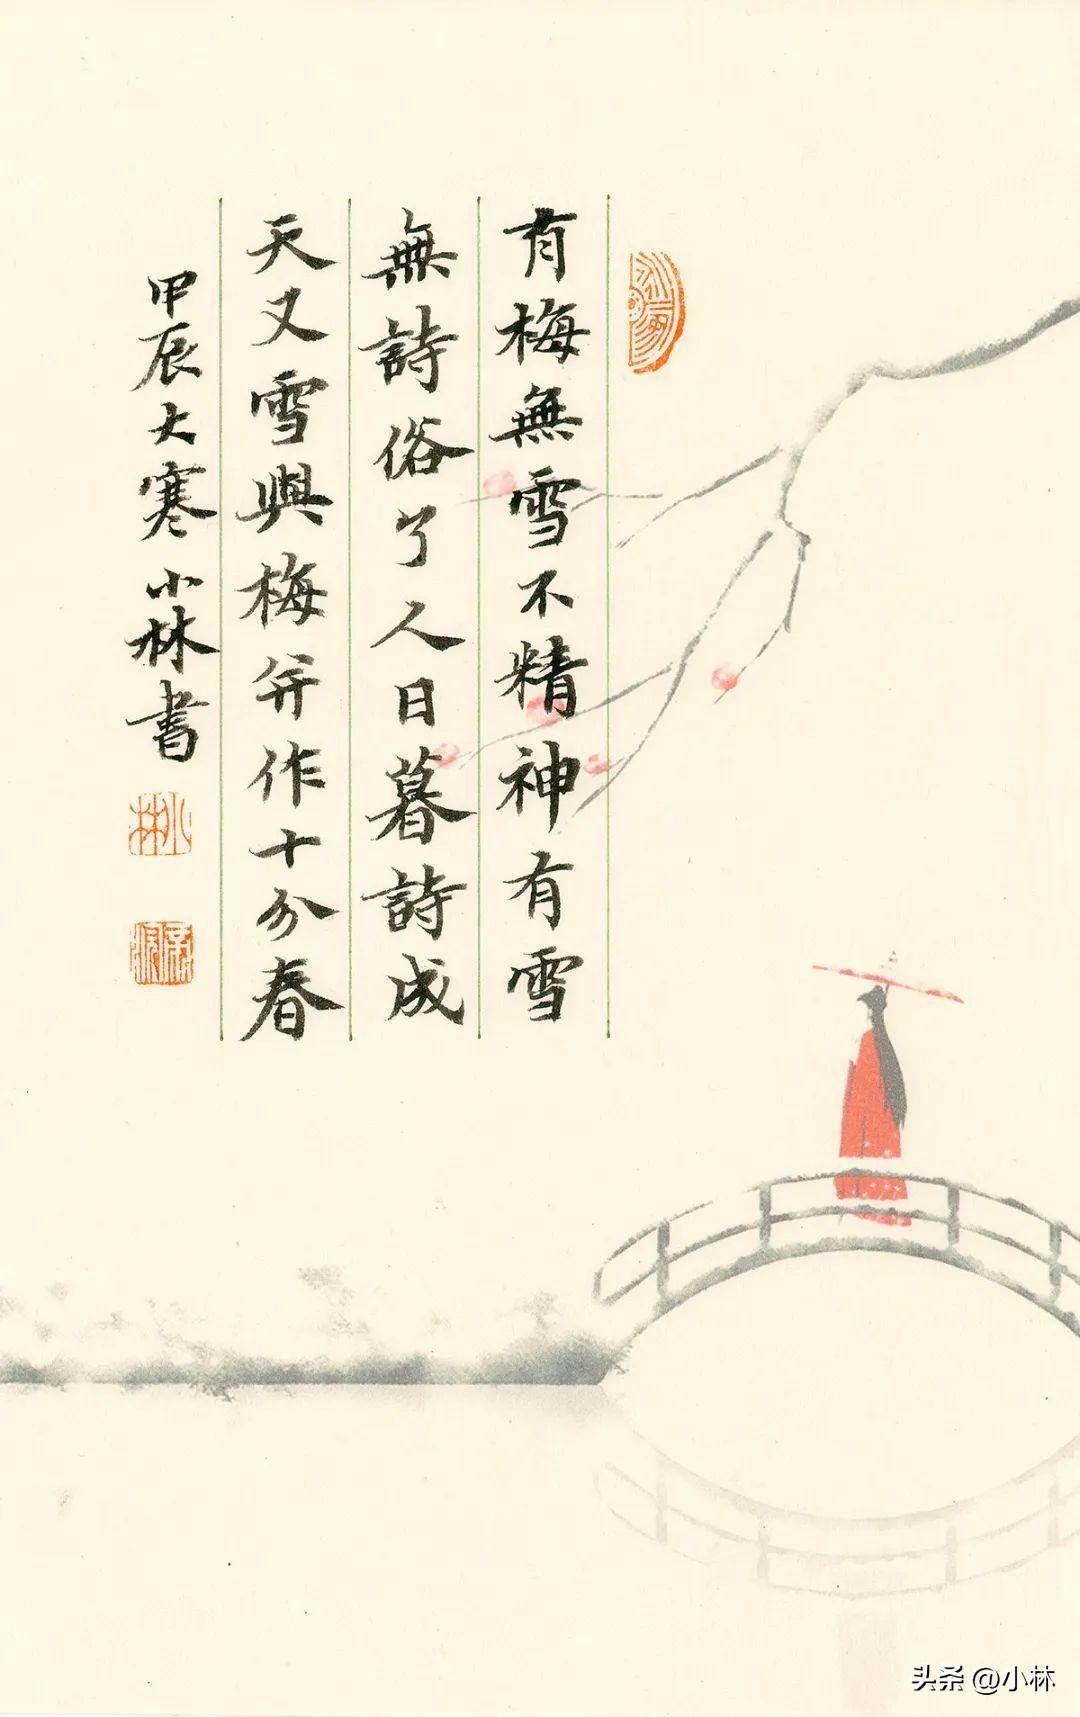 有梅無雪不精神有雪
無詩俗了人日暮詩成
天又雪與梅并作十分春
甲辰大寒小林書
小林
头条 @小林